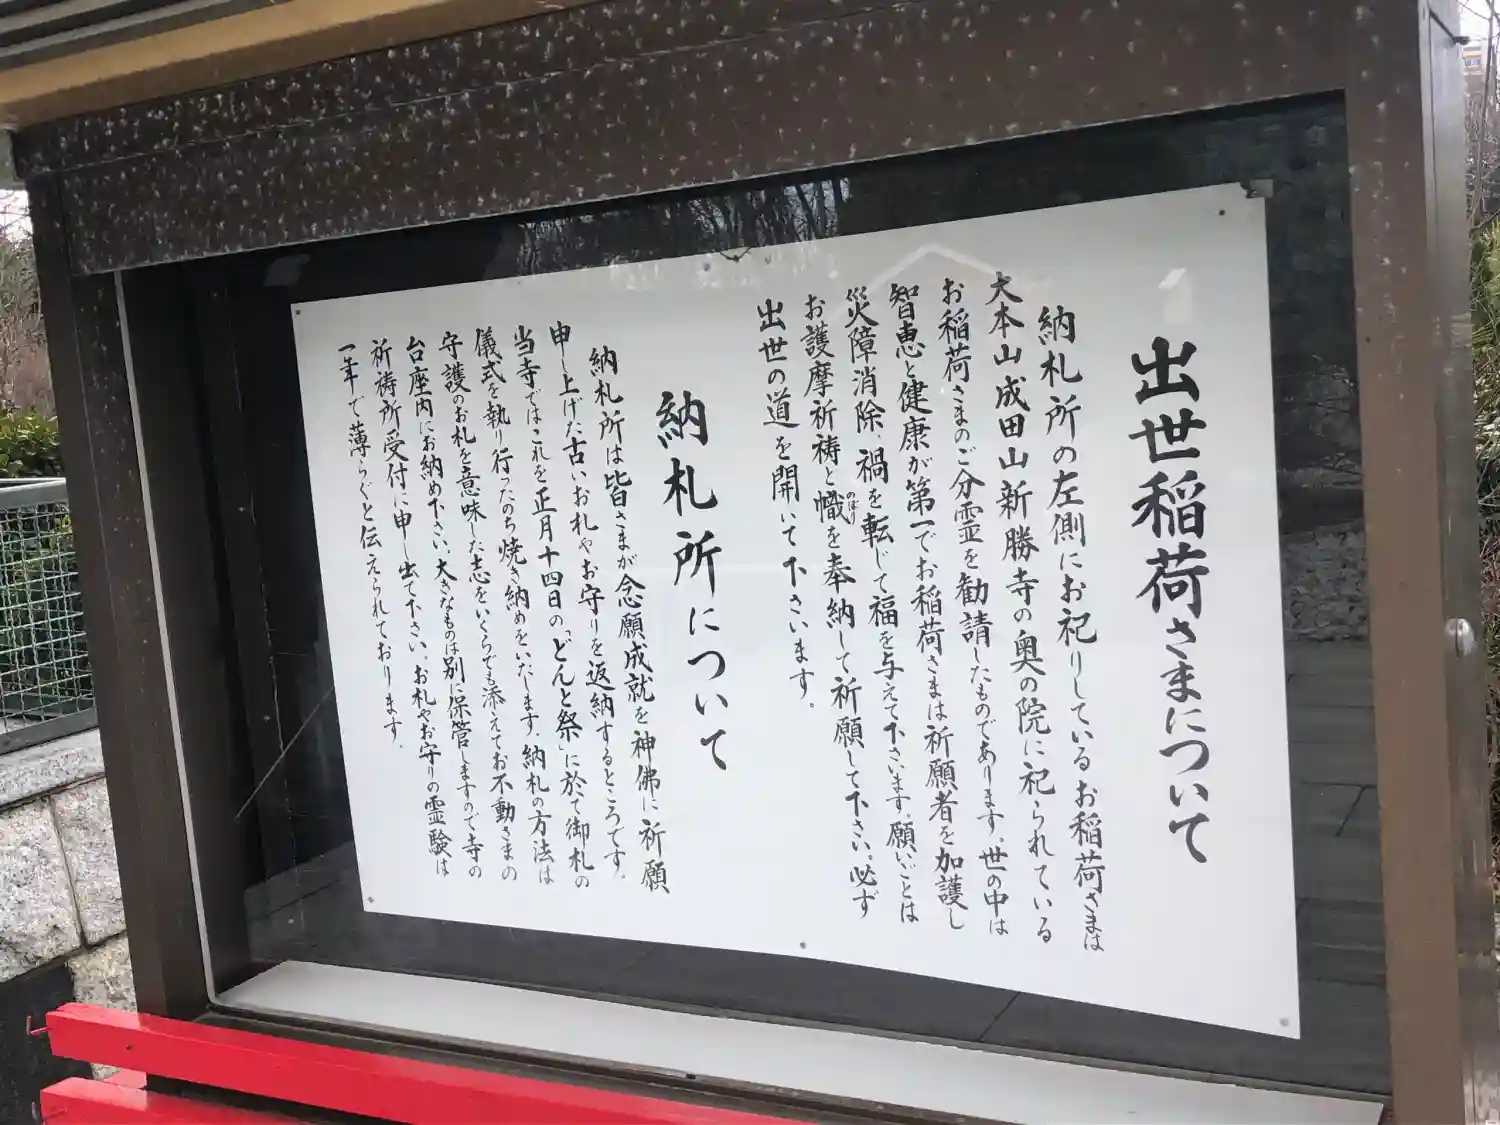 出世稲荷さまについて
納札所の左側にお祀りしているお稲荷さまは
大本山成田山新勝寺の奥の院に祀られている
お稲荷さまのご分霊を勧請したものであります。世の中は
智恵と健康が第一でお稲荷さまは祈願者を加護し
災障消除、禍を転じて福を与えて下さいます。願いごとは
お護摩祈祷と幟を奉納して祈願して下さい。必ず
のぼり
出世の道を開いて下さいます。
納札所について
納札所は皆さまが念願成就を神佛に祈願
申し上げた古いお札やお守りを返納するところです。
当寺ではこれを正月十四日の「どんと祭」に於て御札の
儀式を執り行ったのち焼き納めをいたします。納札の方法は
守護のお札を意味した志をいくらでも添えてお不動さまの
台座内にお納め下さい。大きなものは別に保管しますので寺の
祈祷所受付に申し出て下さい。お札やお守りの霊験は
一年で薄らぐと伝えられております。